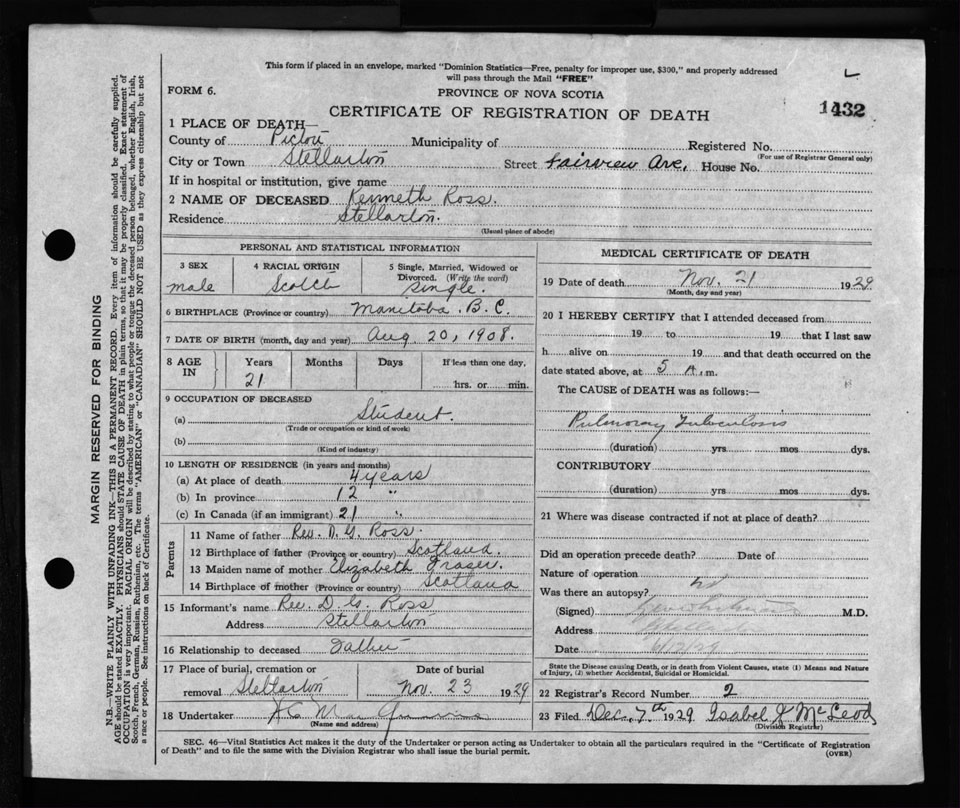 This form if placed in an envelope, marked "Dominion Statistics—Free, penalty for improper use, $300," and properly addressed
will pass through the Mail "FREE"
FORM 6.
PROVINCE OF NOVA SCOTIA
CERTIFICATE OF REGISTRATION OF DEATH
1432
1 PLACE OF DEATH—
County of Pictou Municipality of Registered No.
(For use of Registrar General only)
City or Town Stellarton Street Fairview Ave, House No.
If in hospital or institution, give name
2 NAME OF DECEASED Kenneth Ross.
Residence Stellarton.
(Usual place of abode)
PERSONAL AND STATISTICAL INFORMATION
3 SEX 4 RACIAL ORIGIN 5 Single, Married, Widowed or
Divorced. (Write the word)
male Scotch Single.
6 BIRTHPLACE (Province or country) Manitoba. B.C.
7 DATE OF BIRTH (month, day and year) Aug 20, 1908.
8 AGE IN Years Months Days If less than one day,
21 hrs. or min.
9 OCCUPATION OF DECEASED
(a) Student.
(Trade or occupation or kind of work)
(b)
(Kind of industry)
10 LENGTH OF RESIDENCE (in years and months)
(a) At place of death 4 years
(b) In province 12 "
(c) In Canada (if an immigrant) 21 "
Parents
11 Name of father Rev. D. G. Ross.
12 Birthplace of father (Province or country) Scotland.
13 Maiden name of mother Elizabeth Fraser.
14 Birthplace of mother (Province or country) Scotland
15 Informant's name Rev. D. G. Ross
Address Stellarton
16 Relationship to deceased Father
17 Place of burial, cremation or Date of burial
removal Stellarton Nov. 23 1929
18 Undertaker
(Name and address)
MEDICAL CERTIFICATE OF DEATH
19 Date of death Nov. 21 1929
(Month, day and year)
20 I HEREBY CERTIFY that I attended deceased from
19 to 19 that I last saw
h alive on 19 and that death occurred on
date stated above, at 5 A.m.
The CAUSE of DEATH was as follows:
Pulmonary Tuberculosis
(duration) yrs mos dys.
CONTRIBUTORY
(duration) yrs mos dys.
21 Where was disease contracted if not at place of death?
Did an operation precede death? Date of
Nature of operation
Was there an autopsy?
(Signed) M.D.
Address
Date 6/12/29
State the Disease causing Death, or in death from Violent Causes, state (1) Means and Nature
of Injury, (2) whether Accidental, Suicidal or Homicidal.
22 Registrar's Record Number 2
23 Filed Dec. 7th 1929 Isabel K McLeod
(Division Registrar)
SEC. 46—Vital Statistics Act makes it the duty of the Undertaker or person acting as Undertaker to obtain all the particulars required in the "Certificate of Registration
of Death" and to file the same with the Division Registrar who shall issue the burial permit.
(OVER)
MARGIN RESERVED FOR BINDING
N.B.—WRITE PLAINLY WITH UNFADING INK—THIS IS A PERMANENT RECORD. Every item of information should be carefully supplied.
AGE should be stated EXACTLY. PHYSICIANS should STATE CAUSE OF DEATH in plain terms, so that it may be properly classified. Exact statement of
OCCUPATION is very important. RACIAL ORIGIN will be described by stating to what people or tongue the deceased person belonged, whether English, Irish,
Scotch, French, German, Russian, Ruthenian, etc. The terms "AMERICAN" or "CANADIAN" SHOULD NOT BE USED as they express citizenship but not
a race or people. See instructions on back of Certificate.